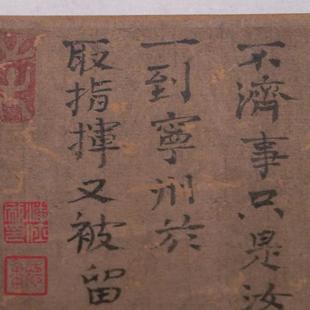 一不濟事只是汝
一到寧州於
一取指揮又被留